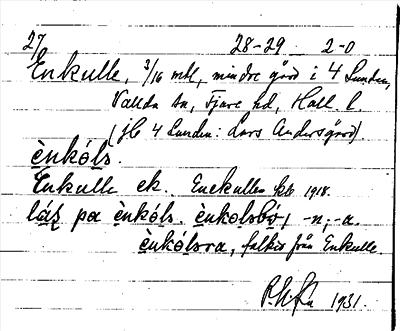 27 28-29 2-0
Enkulle, 3/16 mtl, mindre gård i 4 Lunden,
Vallda sn, Fjäre hd, Hall. l.
(jfr 4 Lunden: Lars Andersgård)
ènkóls.
Enkulle ek. Enekullen 1918.
på ènkóls. ènkolsbo, -n, -a.
ènkólsra, folket från Enkulle.
1931.